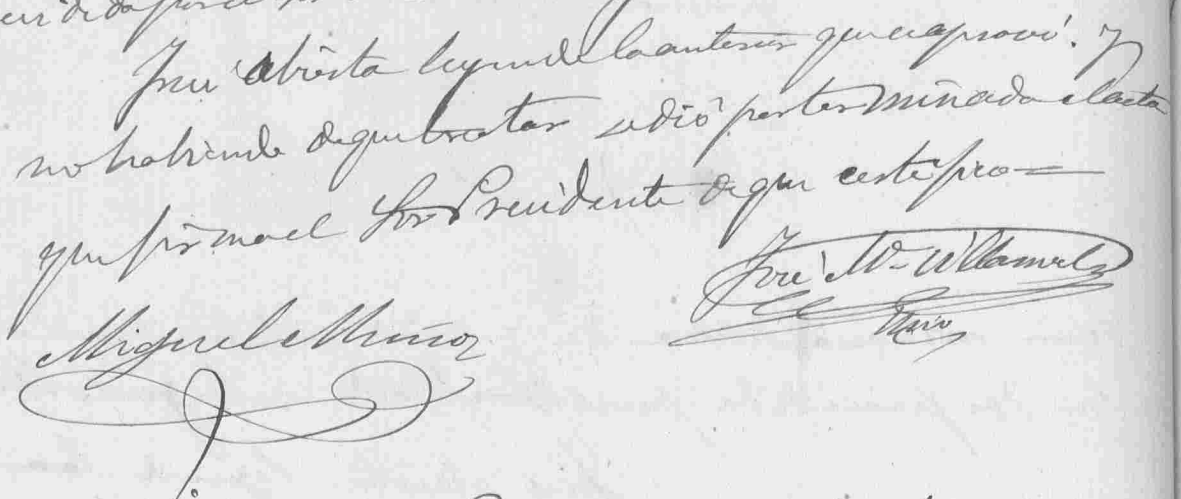 Fué abierta leyendo la anterior que se aprovó. y
no habiendo de que tratar se dió por terminada el acta
que firma el Sor Presidente de que certifico=
José Ma Villa
Srio
Miguel Muñoz